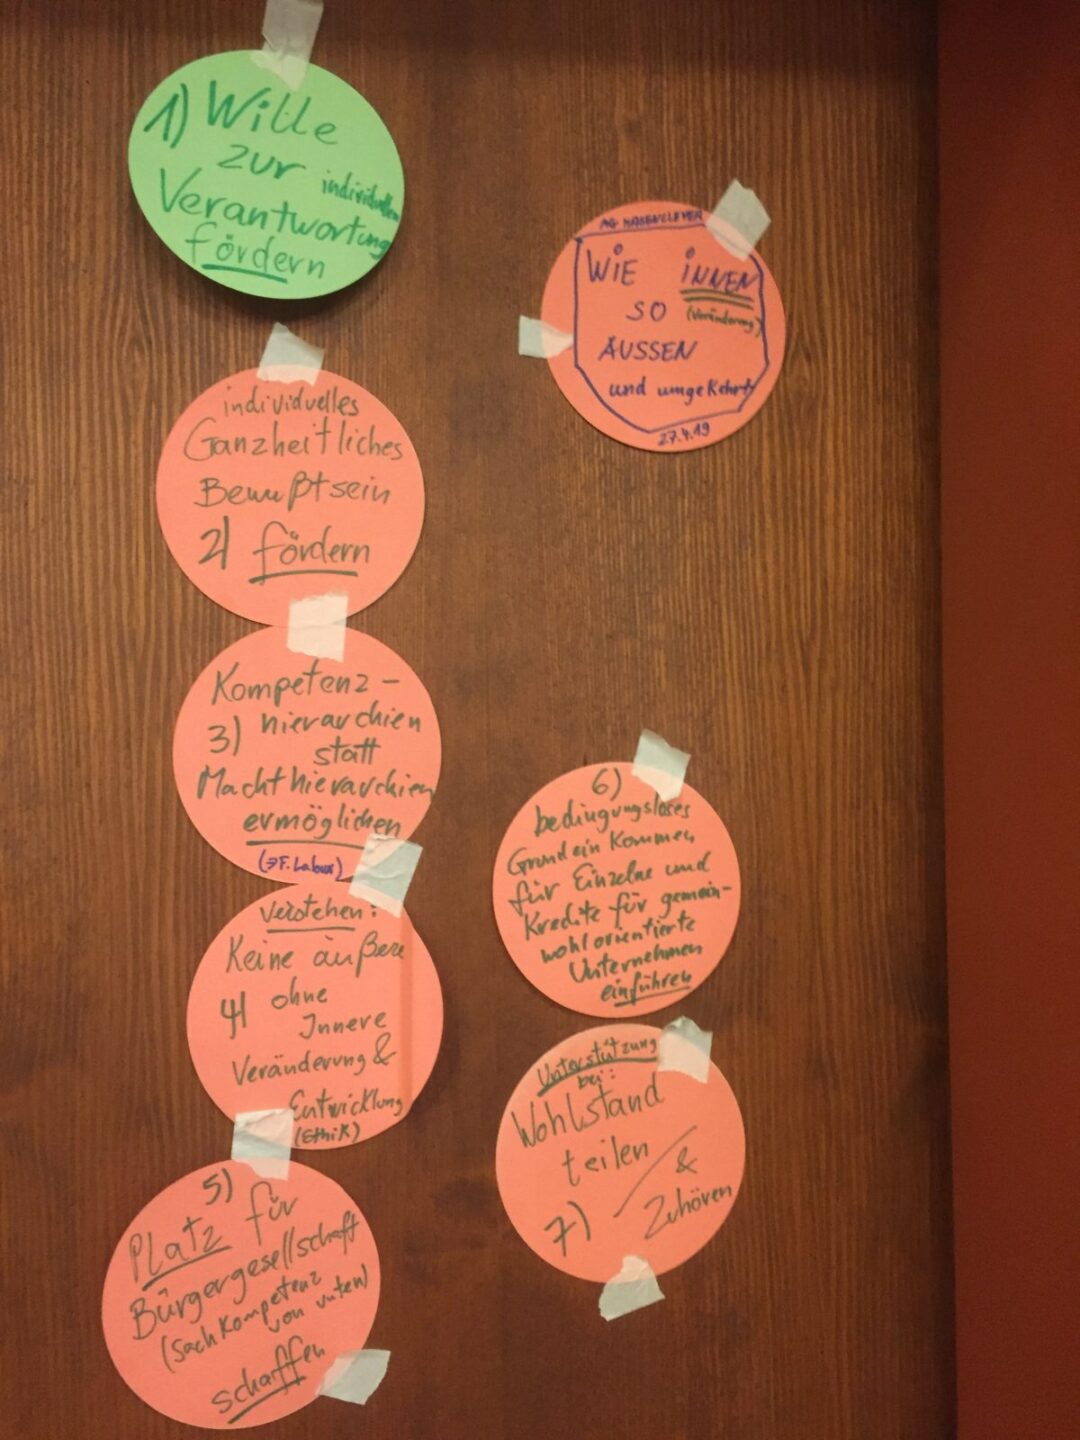 1) Wille
zur
individuellen
Verantwortung
fördern
individuelles
Ganzheitliches
Bewußtsein
2) fördern
Kompetenz-
3) hierarchien
statt
Machthierarchien
ermöglichen
(→F. Laloux)
verstehen:
Keine äußere
4) ohne
Innere
Veränderung &
Entwicklung
(Ethik)
5)
Platz für
Bürgergesellschaft
(Sachkompetenz
von unten)
schaffen
AG HASENCLEVER
WIE INNEN
SO (Veränderung)
AUSSEN
und umgekehrt
27.4.19
6)
bedingungsloses
Grundeinkommen
für Einzelne und
Kredite für gemein-
wohlorientierte
Unternehmen
einführen
Unterstützung
bei:
Wohlstand
teilen
&
7) Zuhören